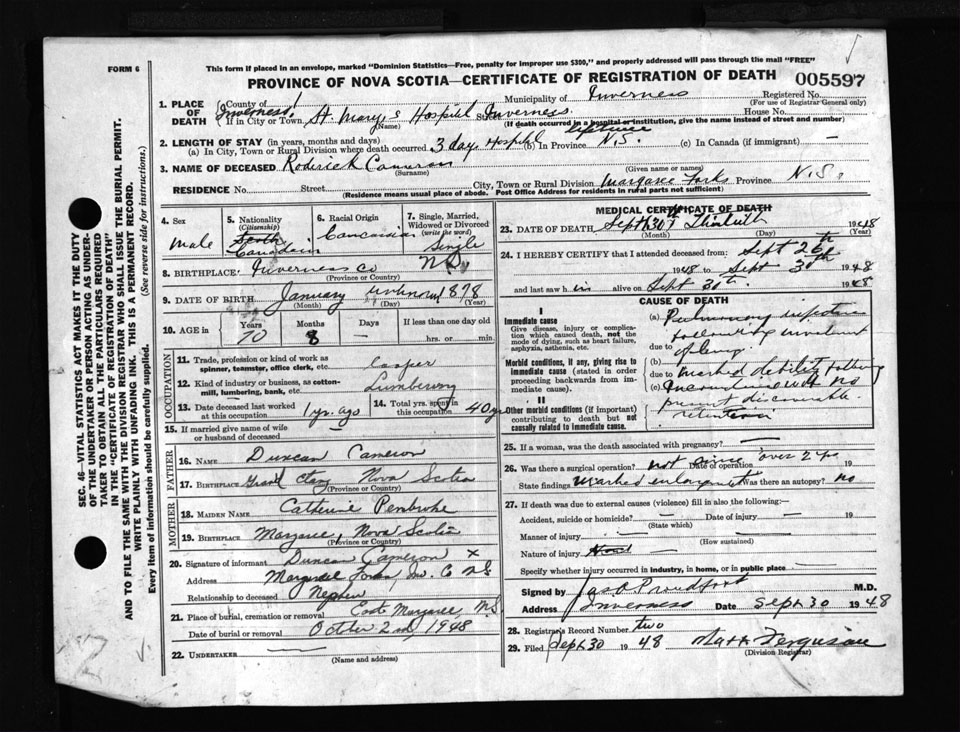 FORM 6
This form if placed in an envelope, marked "Dominion Statistics—Free, penalty for improper use $300," and properly addressed will pass through the mail "FREE"
PROVINCE OF NOVA SCOTIA—CERTIFICATE OF REGISTRATION OF DEATH 005597
1. PLACE OF DEATH
County of Inverness Municipality of Inverness Registered No.
(For use of Registrar General only)
If in City or Town, St. Mary's Hospital Inverness House No.
(Name) (If death occurred in a hospital or institution, give the name instead of street and number)
2. LENGTH OF STAY (in years, months and days)
(a) In City, Town or Rural Division where death occurred 3 day Hospital (b) In Province lifetime N.S. (c) In Canada (if immigrant) —
3. NAME OF DECEASED Roderick Cameron
(Surname) (Given name or names)
RESIDENCE No. Street City, Town or Rural Division Margaree Forks Province N.S.
(Residence means usual place of abode. Post Office Address for residents in rural parts not sufficient)
4. Sex Male
5. Nationality (Citizenship) Scotch Canadain
6. Racial Origin Caucasian
7. Single, Married, Widowed or Divorced (write the word) Single
8. BIRTHPLACE Inverness Co N.S.
(Province or Country)
9. DATE OF BIRTH January unknown 1878
(Month) (Day) (Year)
10. AGE in Years Months Days If less than one day old
70 8 hrs. or min.
OCCUPATION
11. Trade, profession or kind of work as spinner, teamster, office clerk, etc. Cooper
12. Kind of industry or business, as cotton-mill, lumbering, bank, etc. Lumbering
13. Date deceased last worked at this occupation 1 yrs. ago 14. Total yrs. spent in this occupation 40 yrs
15. If married give name of wife or husband of deceased
FATHER
16. NAME Duncan Cameron
17. BIRTHPLACE Nova Scotia
(Province or Country)
MOTHER
18. MAIDEN NAME Catherine Pembroke
19. BIRTHPLACE Margaree, Nova Scotia
(Province or Country)
20. Signature of informant Duncan Cameron X
Address Margaree Forks, Inv. Co N.S.
Relationship to deceased Nephew
21. Place of burial, cremation or removal East Margaree N.S.
Date of burial or removal October 2nd 1948
22. UNDERTAKER
(Name and address)
MEDICAL CERTIFICATE OF DEATH
23. DATE OF DEATH Sept 30th 1948
(Month) (Day) (Year)
24. I HEREBY CERTIFY that I attended deceased from: Sept 26th
1948 to Sept 30th 1948
and last saw him alive on Sept 30th. 1948
CAUSE OF DEATH
I
Immediate cause
Give disease, injury or complication which caused death, not the mode of dying, such as heart failure, asphyxia, asthenia, etc.
Morbid conditions, if any, giving rise to immediate cause (stated in order proceeding backwards from immediate cause).
II
Other morbid conditions (if important) contributing to death but not causally related to immediate cause.
(a) Pulmonary
due to
(b)
due to marked debility
(c) no
present discoverable
retention
25. If a woman, was the death associated with pregnancy? —
26. Was there a surgical operation? not since Date of operation over 2 yrs 19
State findings Marked enlargement Was there an autopsy? no
27. If death was due to external causes (violence) fill in also the following:—
Accident, suicide or homicide? — Date of injury — 19
(State which)
Manner of injury —
(How sustained)
Nature of injury —
Specify whether injury occurred in industry, in home, or in public place —
Signed by M.D.
Address Inverness Date Sept 30 1948
28. Registrar's Record Number two
29. Filed Sept. 30 1948 Ferguson
(Division Registrar)
SEC. 46—VITAL STATISTICS ACT MAKES IT THE DUTY OF THE UNDERTAKER OR PERSON ACTING AS UNDERTAKER TO OBTAIN ALL THE PARTICULARS REQUIRED IN THE "CERTIFICATE OF REGISTRATION OF DEATH" AND TO FILE THE SAME WITH THE DIVISION REGISTRAR WHO SHALL ISSUE THE BURIAL PERMIT.
WRITE PLAINLY WITH UNFADING INK. THIS IS A PERMANENT RECORD.
Every item of information should be carefully supplied. (See reverse side for instructions.)